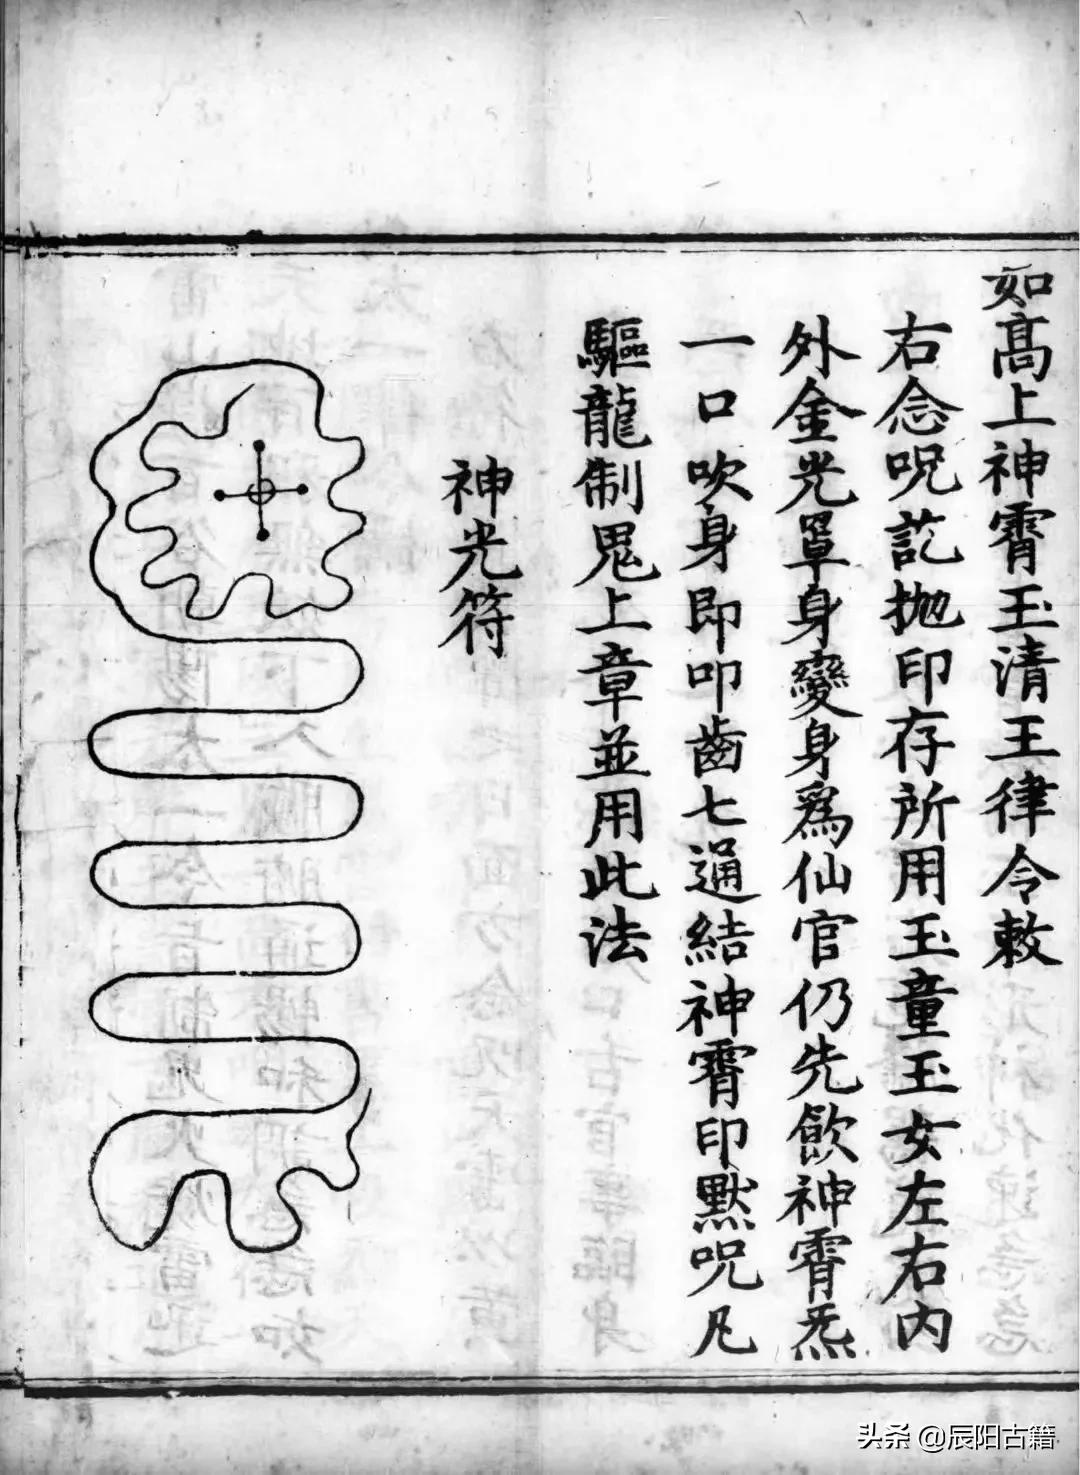 如高上神霄玉清王律令敕
右念呪訖抛印存所用玉童玉女左右内
外金光罩身變身爲仙官仍先飲神霄炁
一口吹身即叩齒七通結神霄印默呪凡
驅龍制鬼上章並用此法
神光符
头条 @辰阳古籍